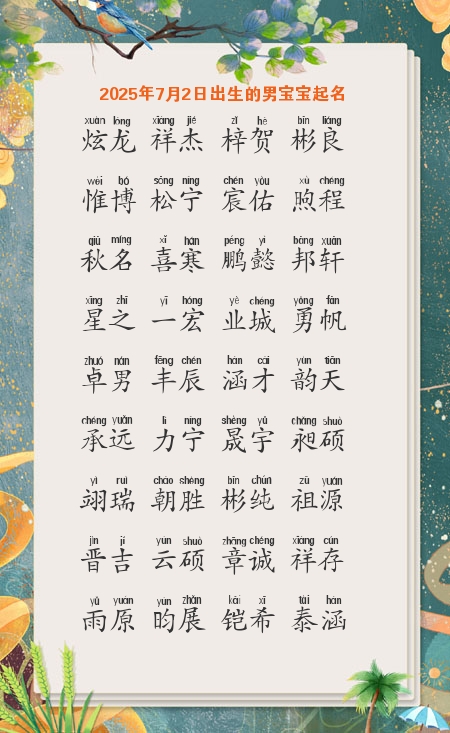 2025年7月2日出生的男宝宝起名
xuàn lóng xiáng jié zǐ hè bīn liáng
炫龙 祥杰 梓贺 彬良
wéi bó sōng níng chén yòu xù chéng
惟博 松宁 宸佑 煦程
qiū míng xǐ hán péng yì bāng xuān
秋名 喜寒 鹏懿 邦轩
xīng zhī yī hóng yè chéng yǒng fān
星之 一宏 业城 勇帆
zhuó nán fēng chén hán cái yùn tiān
卓男 丰辰 涵才 韵天
chéng yuǎn lì níng shèng yǔ chǎng shuò
承远 力宁 晟宇 昶硕
yì ruì cháo shèng bīn chún zǔ yuán
翊瑞 朝胜 彬纯 祖源
jìn jí yún shuò zhāng chéng xiáng cún
晋吉 云硕 章诚 祥存
yǔ yuán yún zhǎn kǎi xī tài hán
雨原 昀展 铠希 泰涵